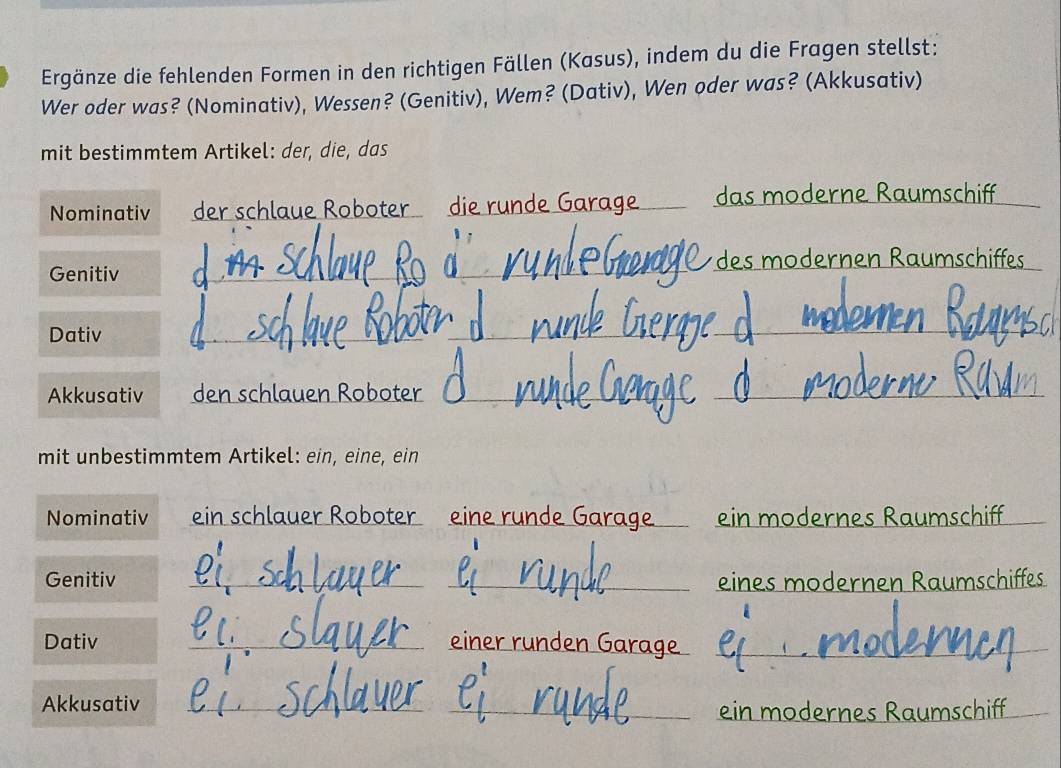 Ergänze die fehlenden Formen in den richtigen Fällen (Kasus), indem du die Fragen stellst:
Wer oder was? (Nominativ), Wessen? (Genitiv), Wem? (Dativ), Wen oder was? (Akkusativ)
mit bestimmtem Artikel: der, die, das
Nominativ der schlaue Roboter die runde Garage das moderne Raumschiff
Genitiv schlaue Ro d runde des modernen Raumschiffes
Dativ d schlaue d runde d modernen
Akkusativ den schlauen Roboter d runde d moderne Raum
mit unbestimmtem Artikel: ein, eine, ein
Nominativ ein schlauer Roboter eine runde Garage ein modernes Raumschiff
Genitiv ei schlauer ei runde eines modernen Raumschiffes
Dativ ei slauer einer runden Garage ei modernen
Akkusativ ei schlauer ei runde ein modernes Raumschiff